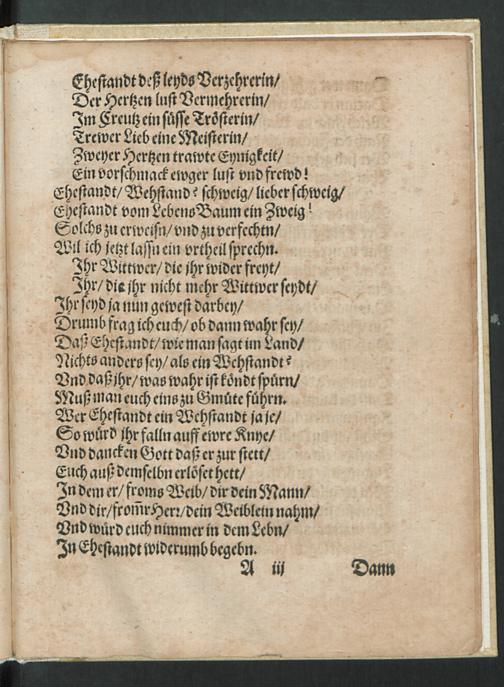 Ehestandt deß leyds Verzehrerin/
Der Hertzen lust Vermehrerin/
Im Creutz ein süsse Trösterin/
Trewer Lieb eine Meisterin/
Zweyer Hertzen trawte Eynigkeit/
Ein vorschmack ewger lust vnd frewd!
Ehestandt/ Wehstand? schweig/ lieber schweig/
Ehestandt vom Lebens Baum ein Zweig!
Solchs zu erweisn/ vnd zu verfechtn/
Wil ich jetzt lassn ein vrtheil sprechn.
Ihr Wittwer/ die ihr wider freyt/
Ihr/ die ihr nicht mehr Wittwer seydt/
Ihr seyd ja nun gewest darbey/
Drumb frag ich euch/ ob dann wahr sey/
Daß Ehestandt/ wie man sagt im Land/
Nichts anders sey/ als ein Wehstandt?
Vnd daß jhr/ was wahr ist köndt spürn/
Muß man euch eins zu Gmüte führn.
Wer Ehestandt ein Wehstandt ja je/
So würd ihr falln auff ewre Knye/
Vnd dancken Gott daß er zur stett/
Euch auß demselbn erlöset hett/
In dem er/ froms Weib/ dir dein Mann/
Vnd dir/ from̃r Herr/ dein Weiblein nahm/
Vnd würd euch nimmer in dem Lebn/
In Ehestandt widerumb begebn.
A iij Dann